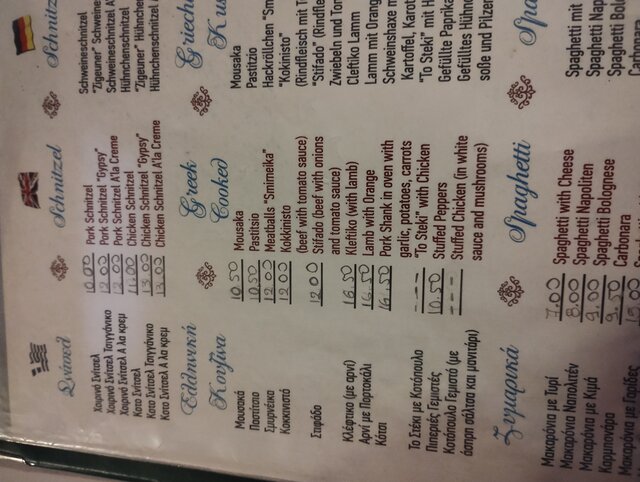 Σνίτσελ Schnitzel Schnitz
Χοιρινό Σνίτσελ 10.00 Pork Schnitzel Schweineschnitzel
Χοιρινό Σνίτσελ Τσιγγάνικο 12.00 Pork Schnitzel "Gypsy" "Zigeuner" Schweine
Χοιρινό Σνίτσελ Α λα κρεμ 12.00 Pork Schnitzel A'la Creme Schweineschnitzel A'
Κοτο Σνίτσελ 11.00 Chicken Schnitzel Hühnchenschnitzel
Κοτο Σνίτσελ Τσιγγάνικο 13.00 Chicken Schnitzel "Gypsy" "Zigeuner" Hühnchen
Κοτο Σνίτσελ Α λα κρεμ 13.00 Chicken Schnitzel A'la Creme Hühnchenschnitzel
Ελληνική Greek Griech
Κουζίνα Cooked Kü
Μουσακά 10.50 Mousaka Mousaka
Παστίτσιο 10.50 Pastitsio Pastitzio
Σμυρνέικα 12.00 Meatballs "Smirneika" Hackröllchen "Sm
Κοκκινιστό 12.00 Kokkinisto "Kokinisto"
(beef with tomato sauce) (Rindfleisch mit T
Στιφάδο 12.00 Stifado (beef with onions "Stifado" (Rindfle
and tomato sauce) Zwiebeln und Tom
Κλέφτικο (με αρνί) 16.50 Kleftiko (with lamb) Cleftiko Lamm
Αρνί με Πορτοκάλι 16.50 Lamb with Orange Lamm mit Orang
Κότσι 16.50 Pork Shank in oven with Schweinshaxe m
garlic, potatoes, carrots Kartoffel, Karot
Το Στέκι με Κοτόπουλο ---- "To Steki" with Chicken "To Steki" mit H
Πιπεριές Γεμιστές 10.50 Stuffed Peppers Gefüllte Paprika
Κοτόπουλο Γεμιστό (με ---- Stuffed Chicken (in white Gefülltes Hühn
άσπρη σάλτσα και μανιτάρι) sauce and mushrooms) soße und Pilzen
Ζυμαρικά Spaghetti Spa
Μακαρόνια με Τυρί 7.00 Spaghetti with Cheese Spaghetti mit
Μακαρόνια Ναπολιτέν 8.00 Spaghetti Napoliten Spaghetti Nap
Μακαρόνια με Κιμά 9.00 Spaghetti Bolognese Spaghetti Bol
Καρμπονάρα 9.50 Carbonara Carbonara
Μακαρόνια με Γαρίδες